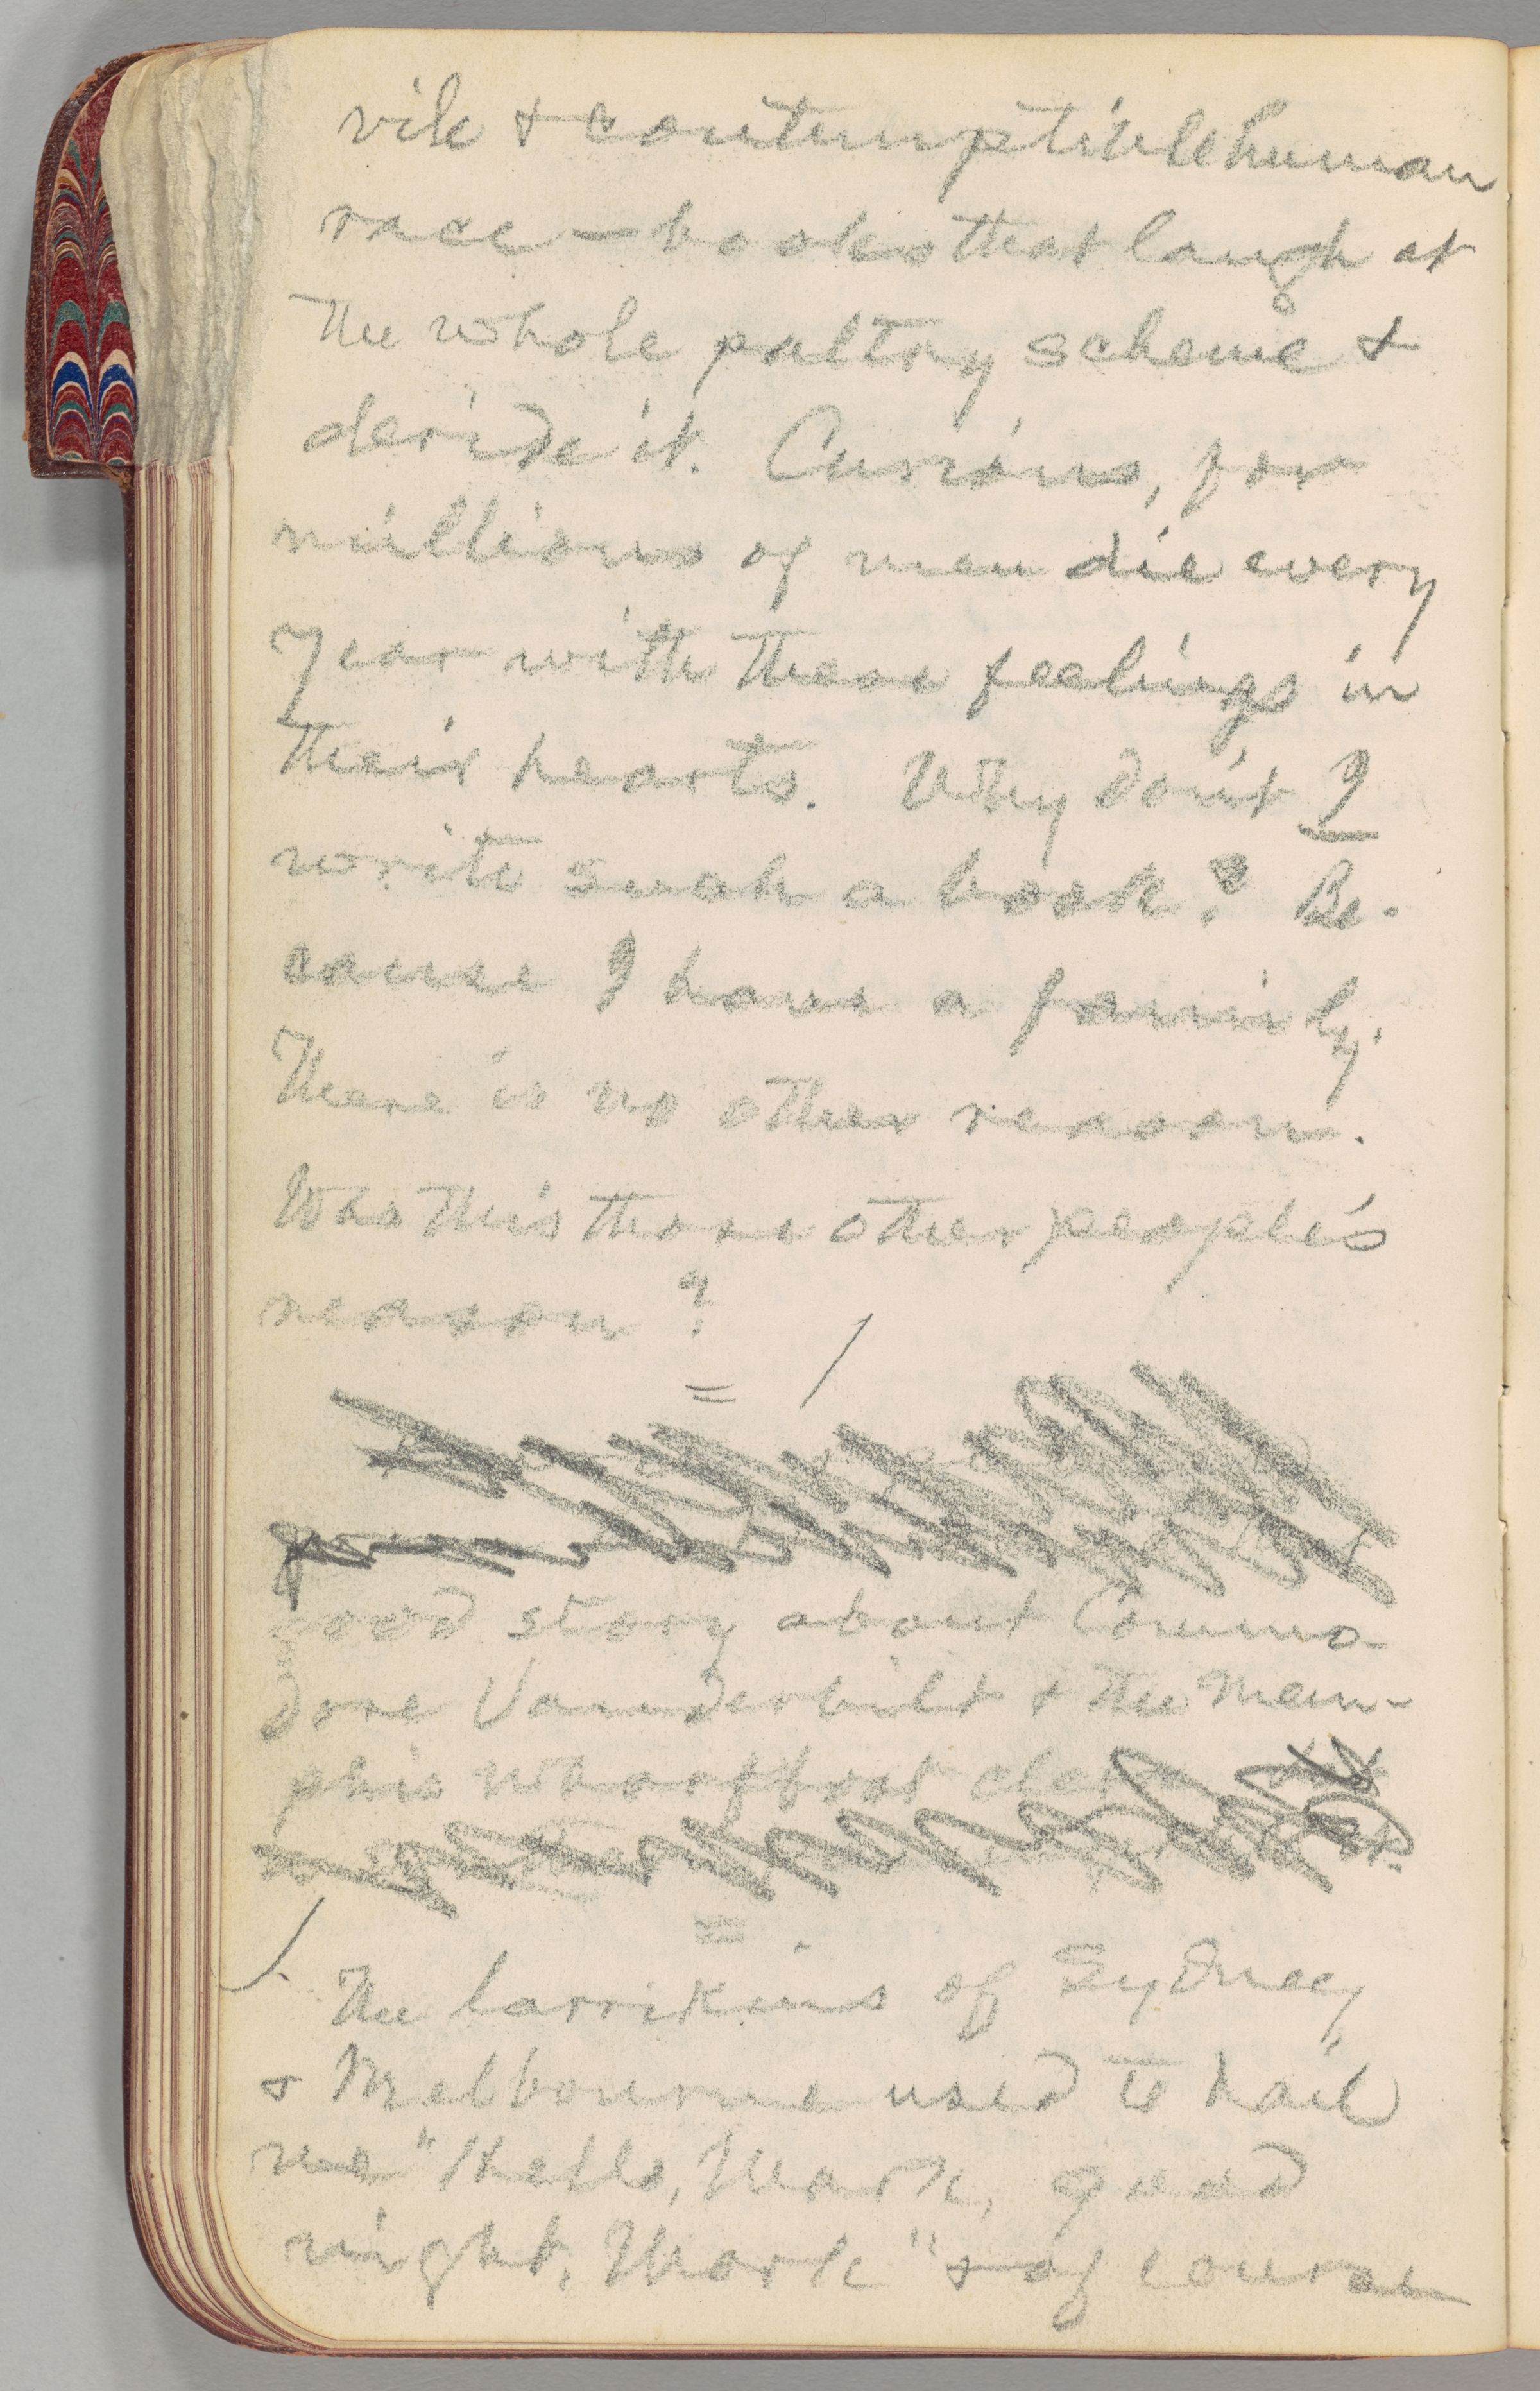 vile & contemptible human
race — books that laugh at
the whole paltry scheme &
deride it. Curious, for
millions of men die every
year with these feelings in
their hearts. Why don't I
write such a book? Be-
cause I have a family.
There is no other reason.
Was this those other people's
reason?
=
good story about Commo-
dore Vanderbilt & the Mem-
phis wharfboat
=
The larrikins of Sydney
& Melbourne used to hail
me "Hello, Mark, good
night, Mark" & of course